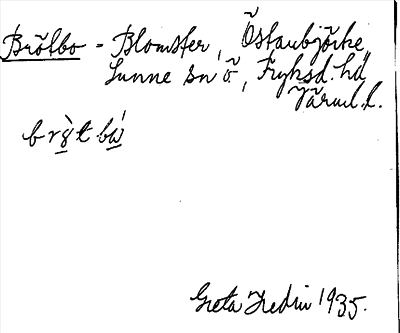 Brötbo - Blomster, Östanbjörke,
Sunne sn ö, Fryksd. hd,
Värml. l.
br̀ø̱t bá̱
Greta Hedin 1935.